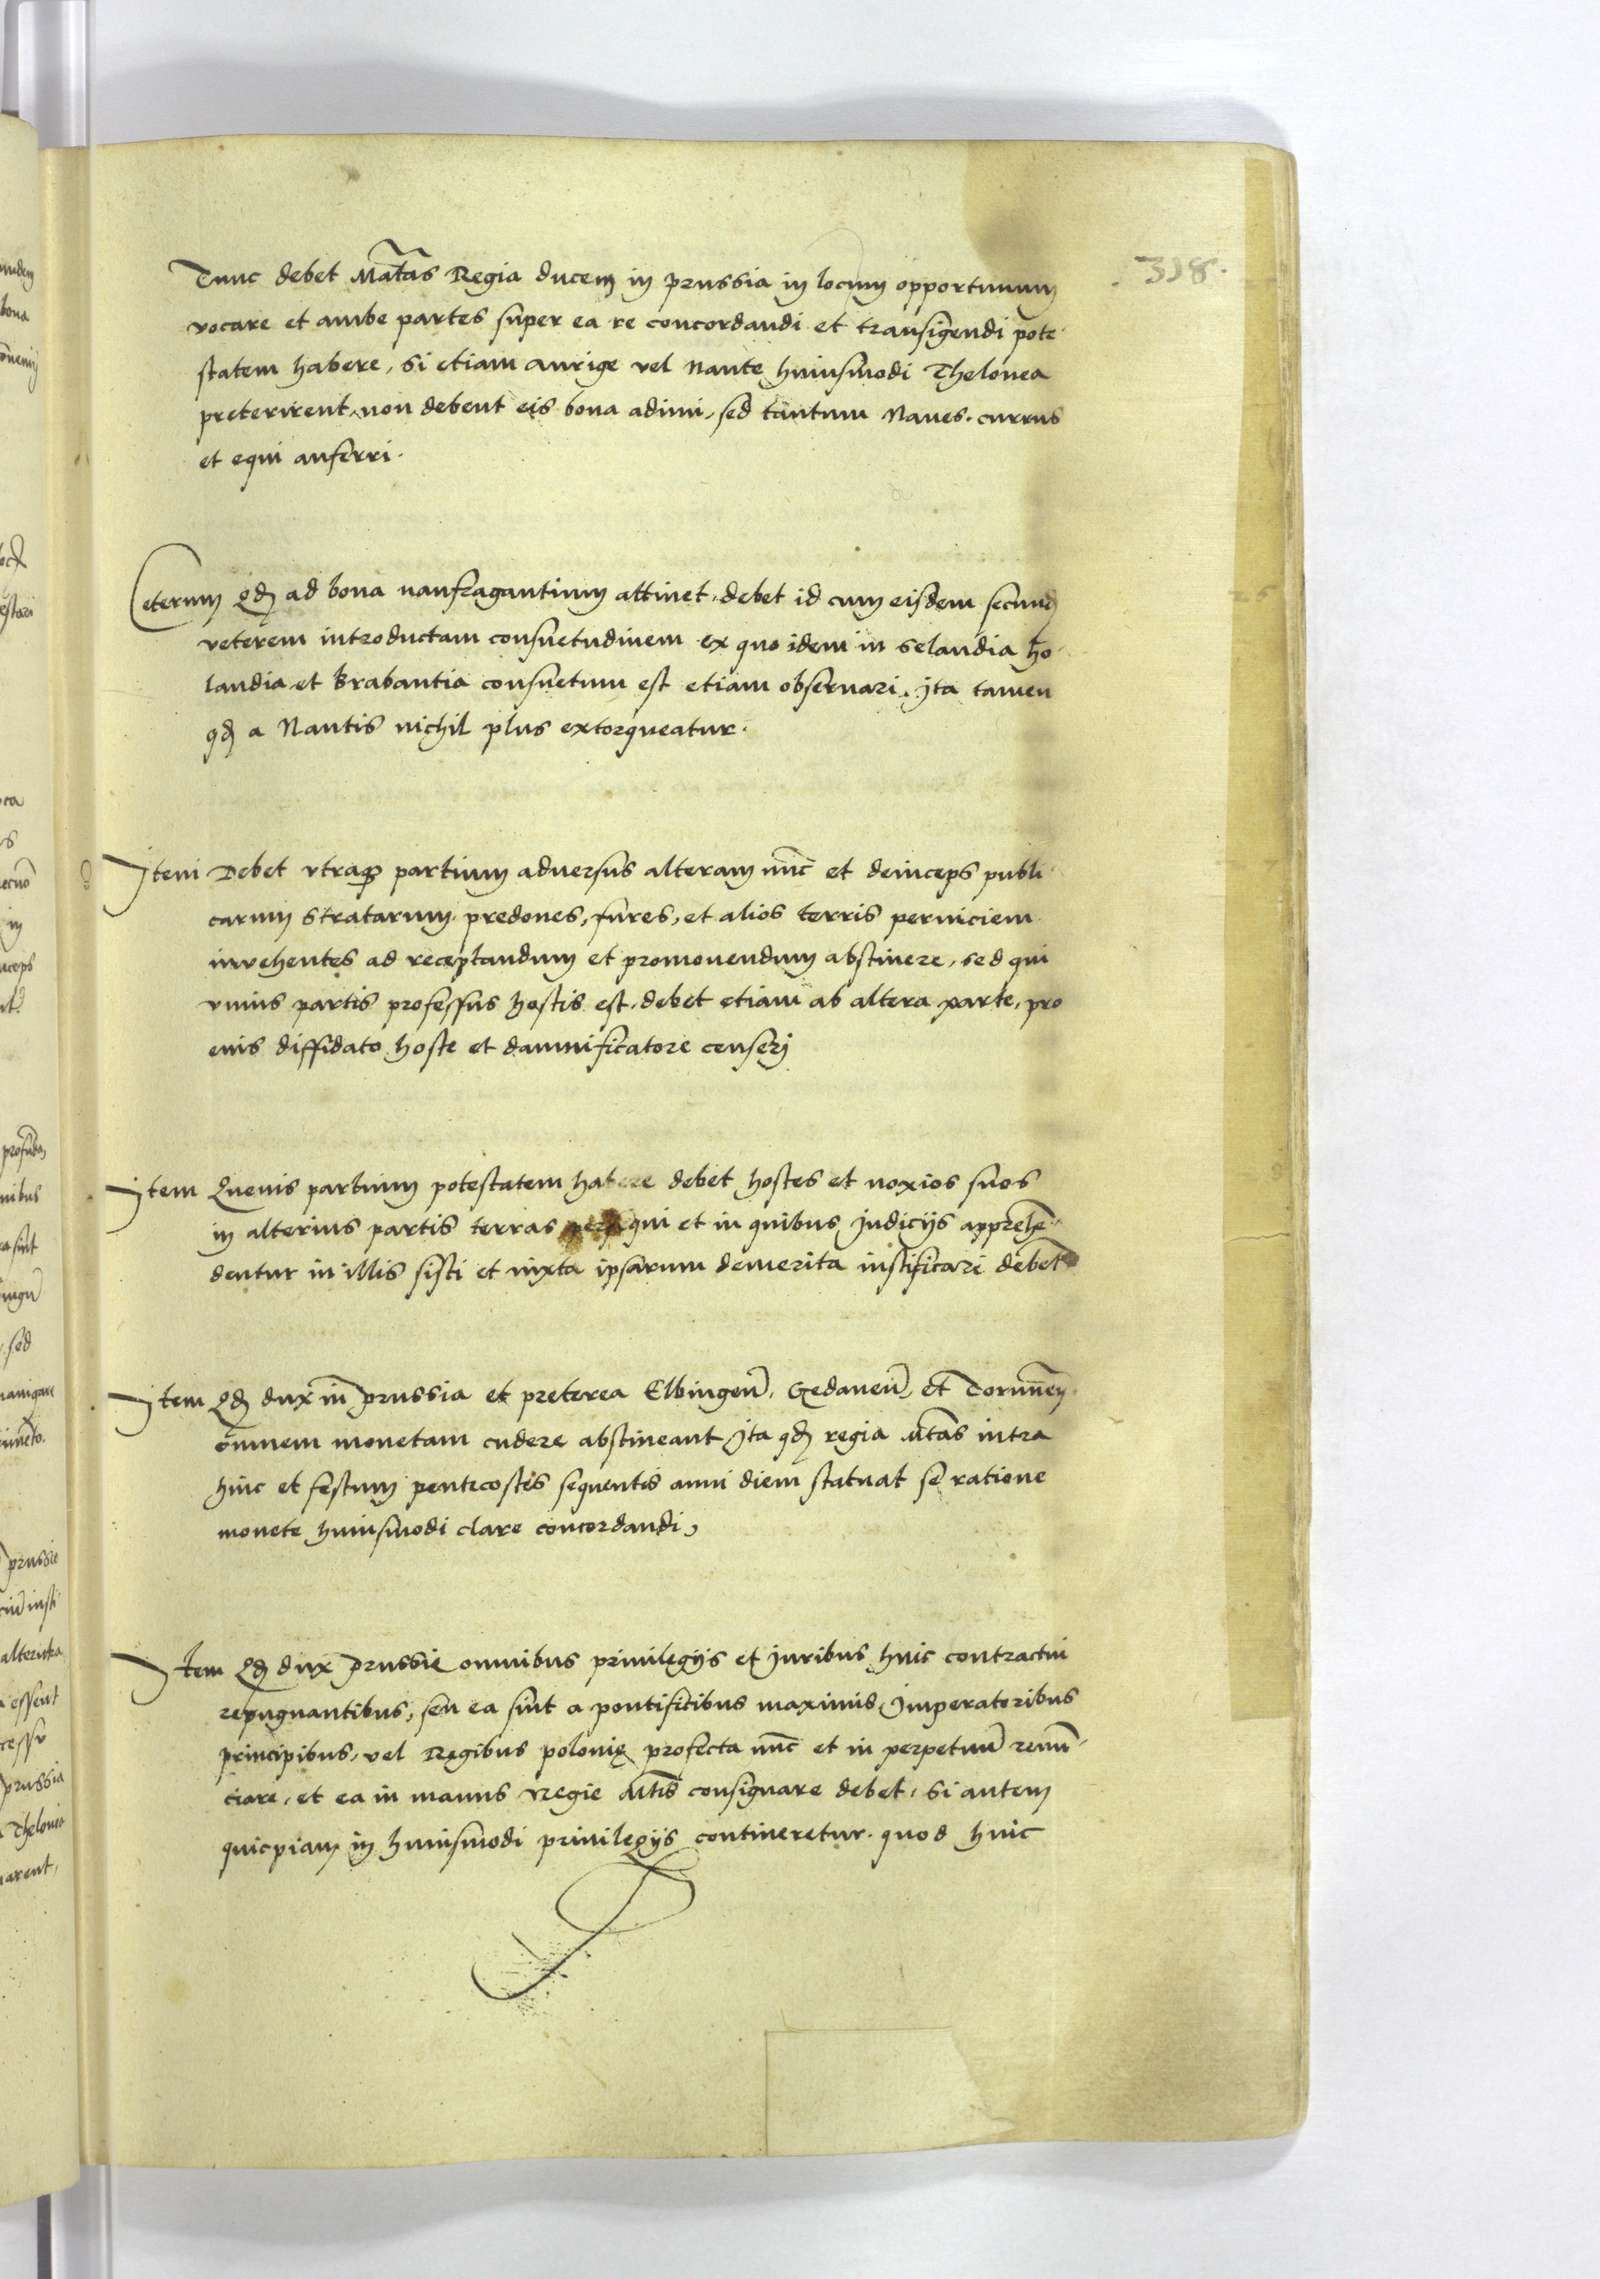 318.
Tunc debet Matas Regia ducem in prussia in locum opportunum
vocare et ambe partes super ea re concordandi et transigendi pote
statem habere, Si etiam aurige vel Naute huiusmodi Thelonea
preterirent, non debent eis bona adimi, sed tantum Naues. currus
et equi auferri.
Ceterum Qd ad bona naufragantium attinet, debet id cum eisdem secund
veterem introductam consuetudinem ex quo idem in selandia ho
landia et Brabantia consuetum est etiam obseruari, Ita tamen
qd a Nautis nichil plus extorqueatur.
Item Debet vtraque partium aduersus alteram nunc et deinceps publi
carum stratarum predones, fures, et alios terris perniciem
inuehentes ad receptandum et promouendum abstinere, sed qui
vnius partis professus hostis est, debet etiam ab altera parte, pro
eius diffidato hoste et damnificatore censeri
Item Queuis partium potestatem habere debet hostes et noxios suos
in alterius partis terras persequi et in quibus Judicijs apprehen
dentur in illis sisti et iuxta ipsarum demerita iustificari debet
Item Qd dux in prussia et preterea Elbingen, Gedanen, et Torunen
omnem monetam cudere abstineant Ita qd regia Mtas intra
hinc et festum pentecostes sequentis anni diem statuat se ratione
monete huiusmodi clare concordandi,
Item Qd dux prussie omnibus priuilegijs et Juribus huic contractui
repugnantibus, seu ea sint a pontificibus maximis, Imperatoribus
principibus, vel Regibus polonię profecta nunc et in perpetuum renun
ciare, et ea in manus Regie Mtis consignare debet, Si autem
quicpiam in huiusmodi priuilegijs contineretur. quod huic